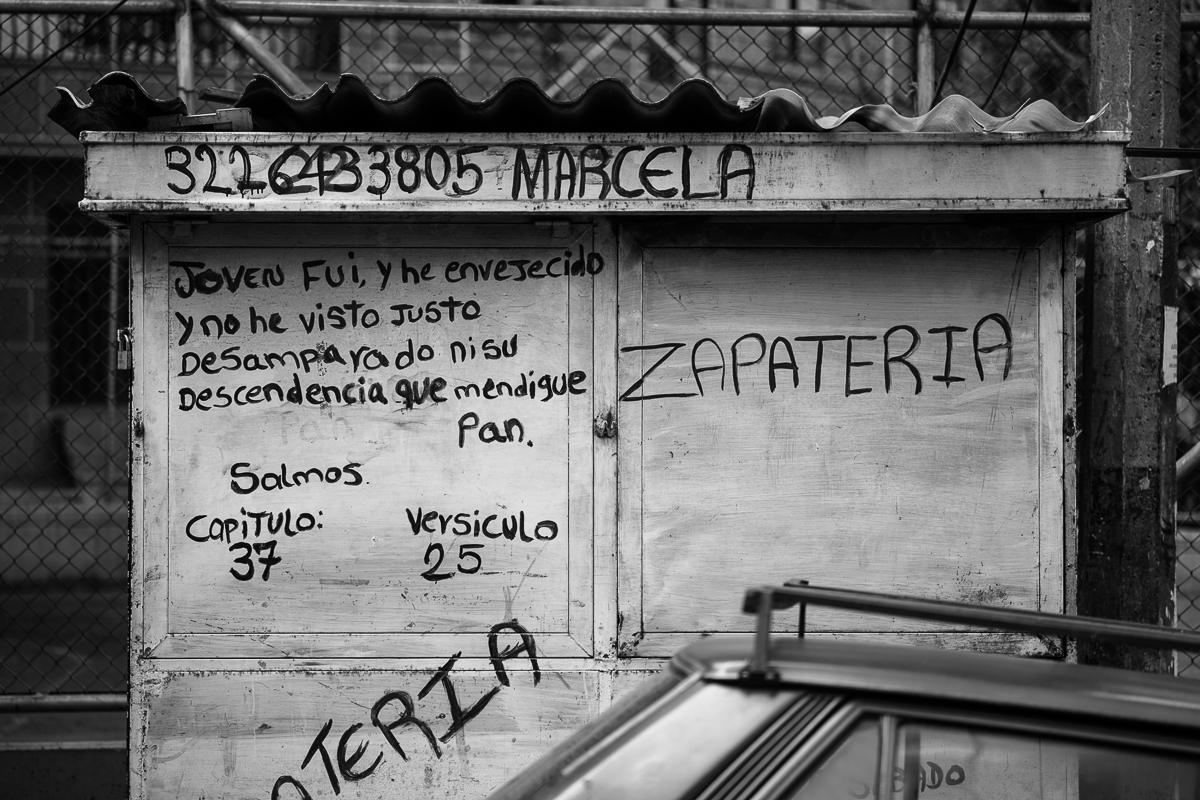 3226433805 MARCELA
JOVEN FUi, y he enveJecido
y no he visto Justo
Desamparado ni su
Descendencia que mendigue
Pan.
Salmos.
CapiTULO: Versiculo
37 25
ZAPATERIA
ATERIA